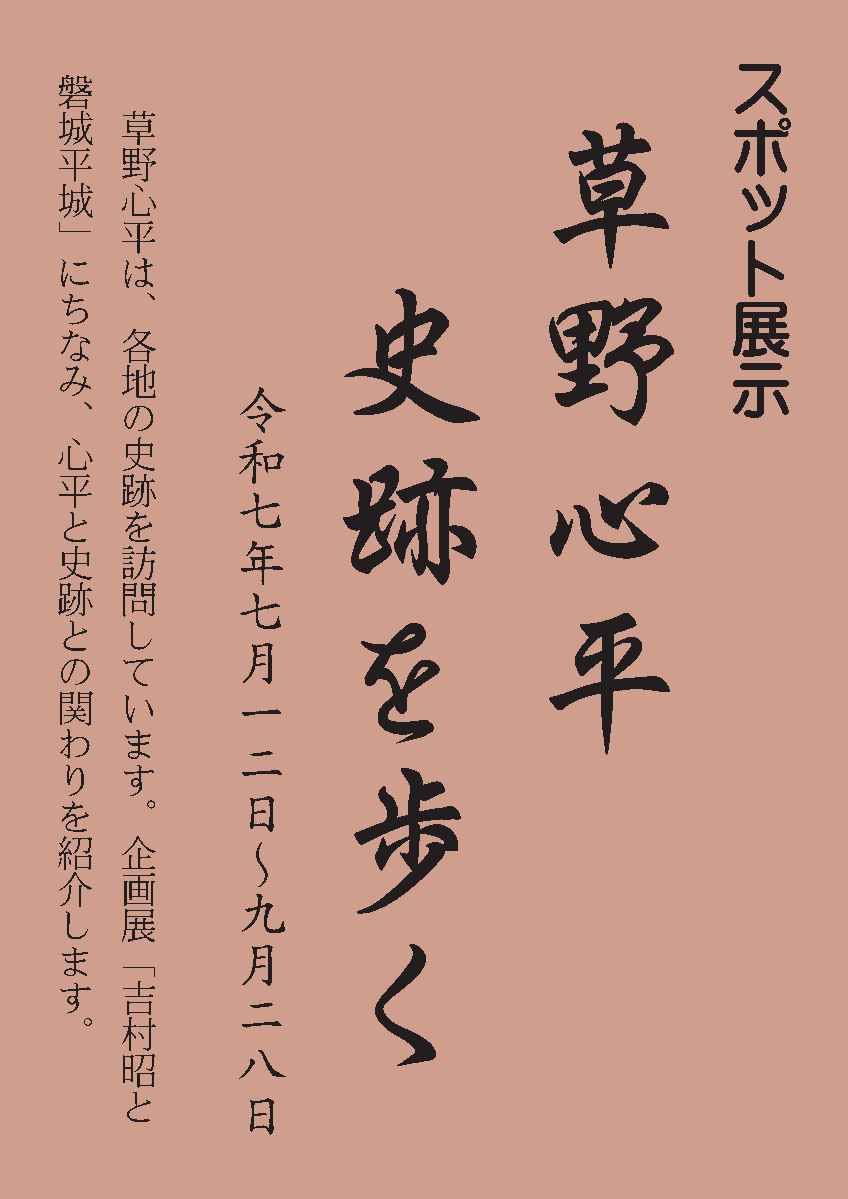 スポット展示
草野心平
史跡を歩く
令和七年七月一二日～九月二八日
草野心平は、各地の史跡を訪問しています。企画展「吉村昭と
磐城平城」にちなみ、心平と史跡との関わりを紹介します。